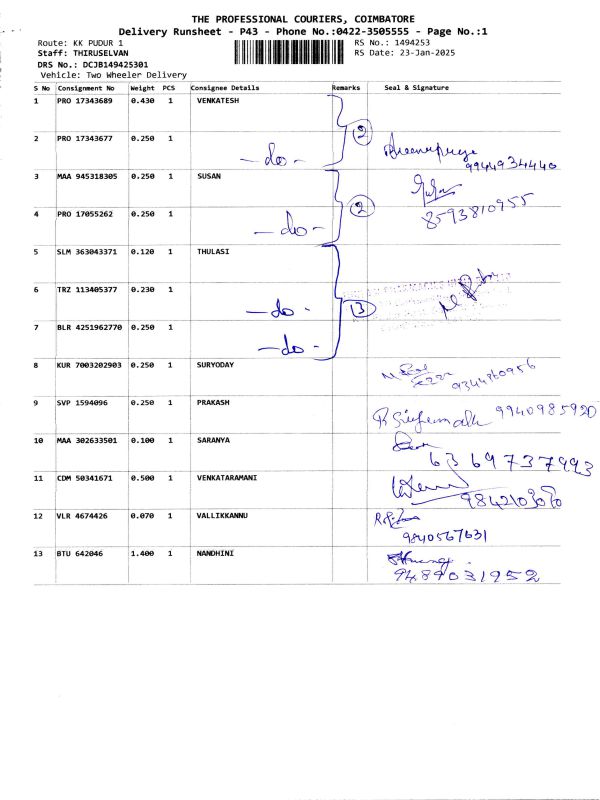 THE PROFESSIONAL COURIERS, COIMBATORE
Delivery Runsheet - P43 - Phone No.:0422-3505555 - Page No.:1
Route: KK PUDUR 1 RS No.: 1494253
Staff: THIRUSELVAN RS Date: 23-Jan-2025
DRS No.: DCJB149425301
Vehicle: Two Wheeler Delivery
S No Consignment No Weight PCS Consignee Details Remarks Seal & Signature
1 PRO 17343689 0.430 1 VENKATESH
2 PRO 17343677 0.250 1 -do- 2 9944934440
3 MAA 945318305 0.250 1 SUSAN
4 PRO 17055262 0.250 1 -do- 2 8593810955
5 SLM 363043371 0.120 1 THULASI
6 TRZ 113405377 0.230 1 -do- 3
7 BLR 4251962770 0.250 1 -do-
8 KUR 7003202903 0.250 1 SURYODAY 9344860956
9 SVP 1594096 0.250 1 PRAKASH 9940985920
10 MAA 302633501 0.100 1 SARANYA 6369737993
11 CDM 50341671 0.500 1 VENKATARAMANI
12 VLR 4674426 0.070 1 VALLIKKANNU 9840567631
13 BTU 642046 1.400 1 NANDHINI 9489031952